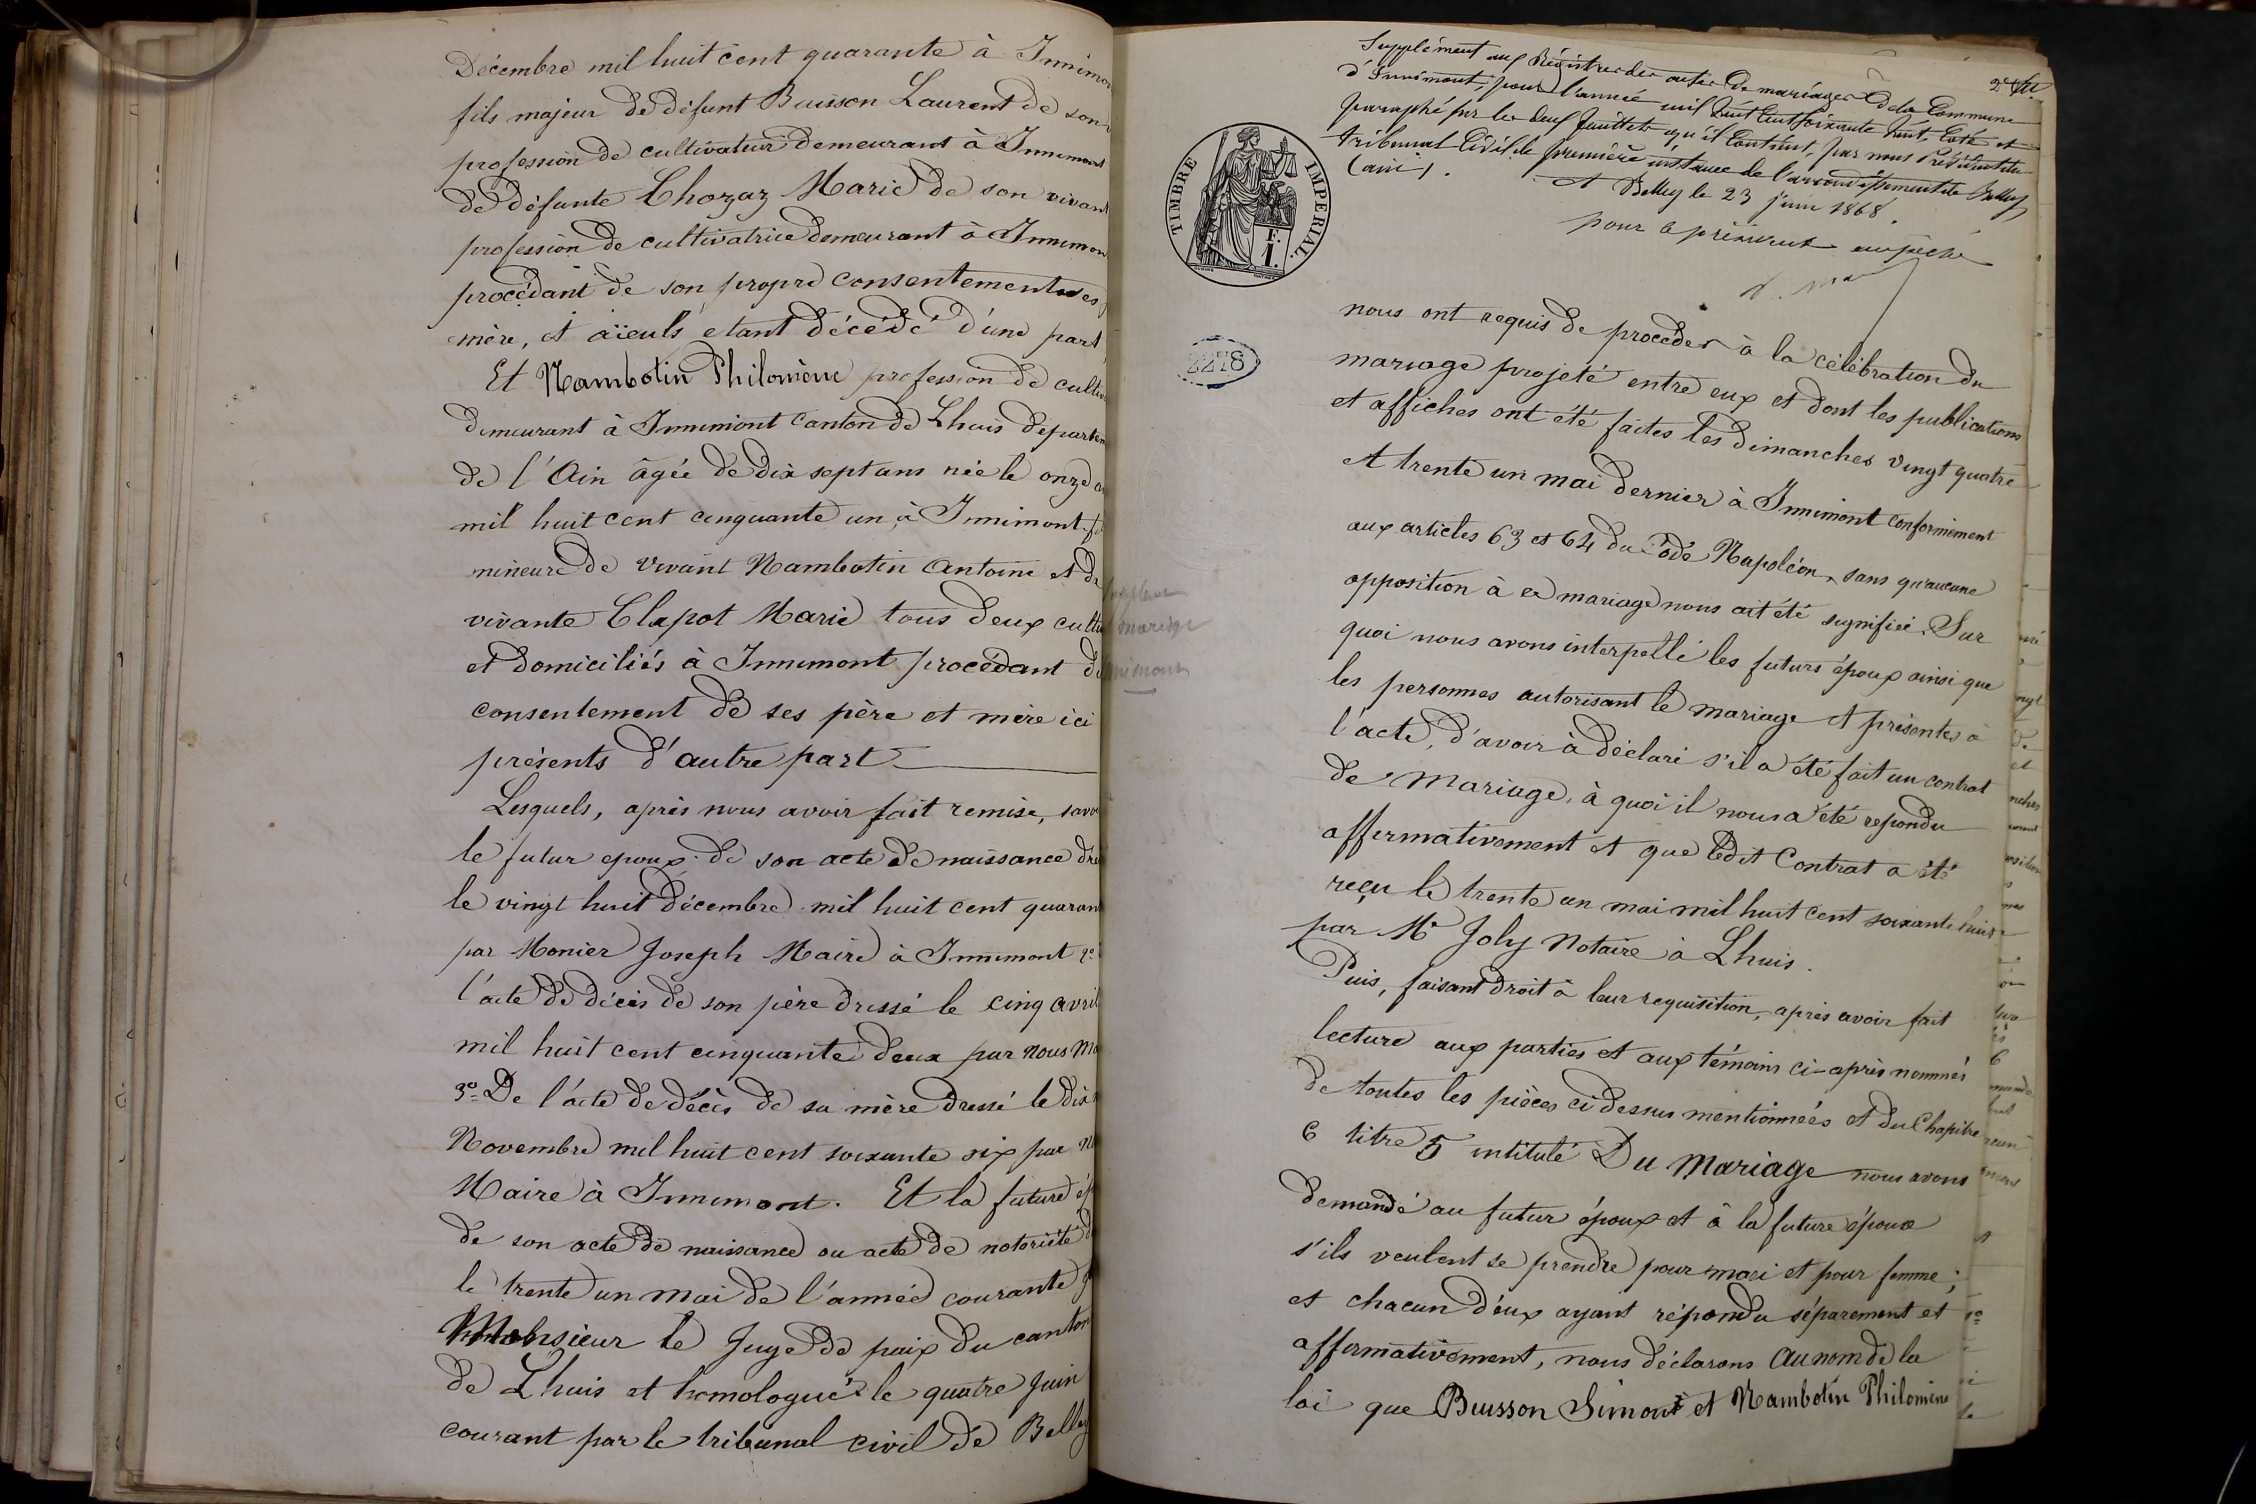 Décembre mil huit cent quarante à Innimon
fils majeur de défunt Buisson Laurent de son
profession de cultivateur demeurant à Innimont
de défunte Chozaz Marie de son vivant
profession de cultivatrice demeurant à Innimon
procédant de son propre consentement ses
mère, et aïeuls etant décédé d'une part
Et Nambotin Philomène profession de cultiv
demeurant à Innimont canton de Lhuis départem
de l'Ain âgée de dix sept ans née le onze
mil huit cent cinquante un à Innimont
mineure de vivant Nambotin Antoine et de
vivante Clapot Marie tous deux cultiv
et domiciliés à Innimont procédant du
consentement de ses père et mère ici
présents d'autre part
Lesquels, après nous avoir fait remise, savo
le futur epoux de son acte de naissance dre
le vingt huit décembre mil huit cent quaran
par Monier Joseph Maire à Innimont 2º
l'acte de décès de son père dressé le cinq avril
mil huit cent cinquante deux par nous Ma
3º De l'acte de décès de sa mère dressé le dix
Novembre mil huit cent soixante six par N
Maire à Innimont. Et la future ép
de son acte de naissance ou acte de notoriété d
le trente un mai de l'année courante
Monsieur le Juge de paix du canton
de Lhuis et homologué le quatre Juin
courant par le tribunal civil de Belley
Supplément aux Régistres des actes de mariages de la Commune
d'Innimont, pour l'année mil huit cent soixante huit, Coté et
paraphé sur les deux feuillets qu'il Contient, par nous Président du
tribunal Civil de première instance de l'arrondissement de Belley
(ain).
A Belley le 23 juin 1868.
pour le président empêché
2e
TIMBRE IMPERIAL.
F. 1.
2278
mariage
nous ont requis de procéder à la célébration du
mariage projeté entre eux et dont les publications
et affiches ont été faites les dimanches vingt quatre
et trente un mai dernier à Innimont conformément
aux articles 63 et 64 du Code Napoléon, sans qu'aucune
opposition à ce mariage nous ait été signifiée. Sur
quoi nous avons interpellé les futurs époux ainsi que
les personnes autorisant le mariage et présentes à
l'acte, d'avoir à déclaré s'il a été fait un contrat
de Mariage, à quoi il nous a été repondu
affirmativement et que ledit Contrat a été
reçu le trente un mai mil huit cent soixante huit
par Me Joly Notaire à Lhuis.
Puis, faisant droit à leur requisition, après avoir fait
lecture aux parties et aux témoins ci-après nommés
de toutes les pièces ci dessus mentionnées et du Chapitre
6 titre 5 intitulé Du Mariage nous avons
demandé au futur époux et à la future épouse
s'ils veulent se prendre pour mari et pour femme;
et chacun d'eux ayant répondu séparement et
affirmativement, nous déclarons au nom de la
loi que Buisson Simon et Nambotin Philomène